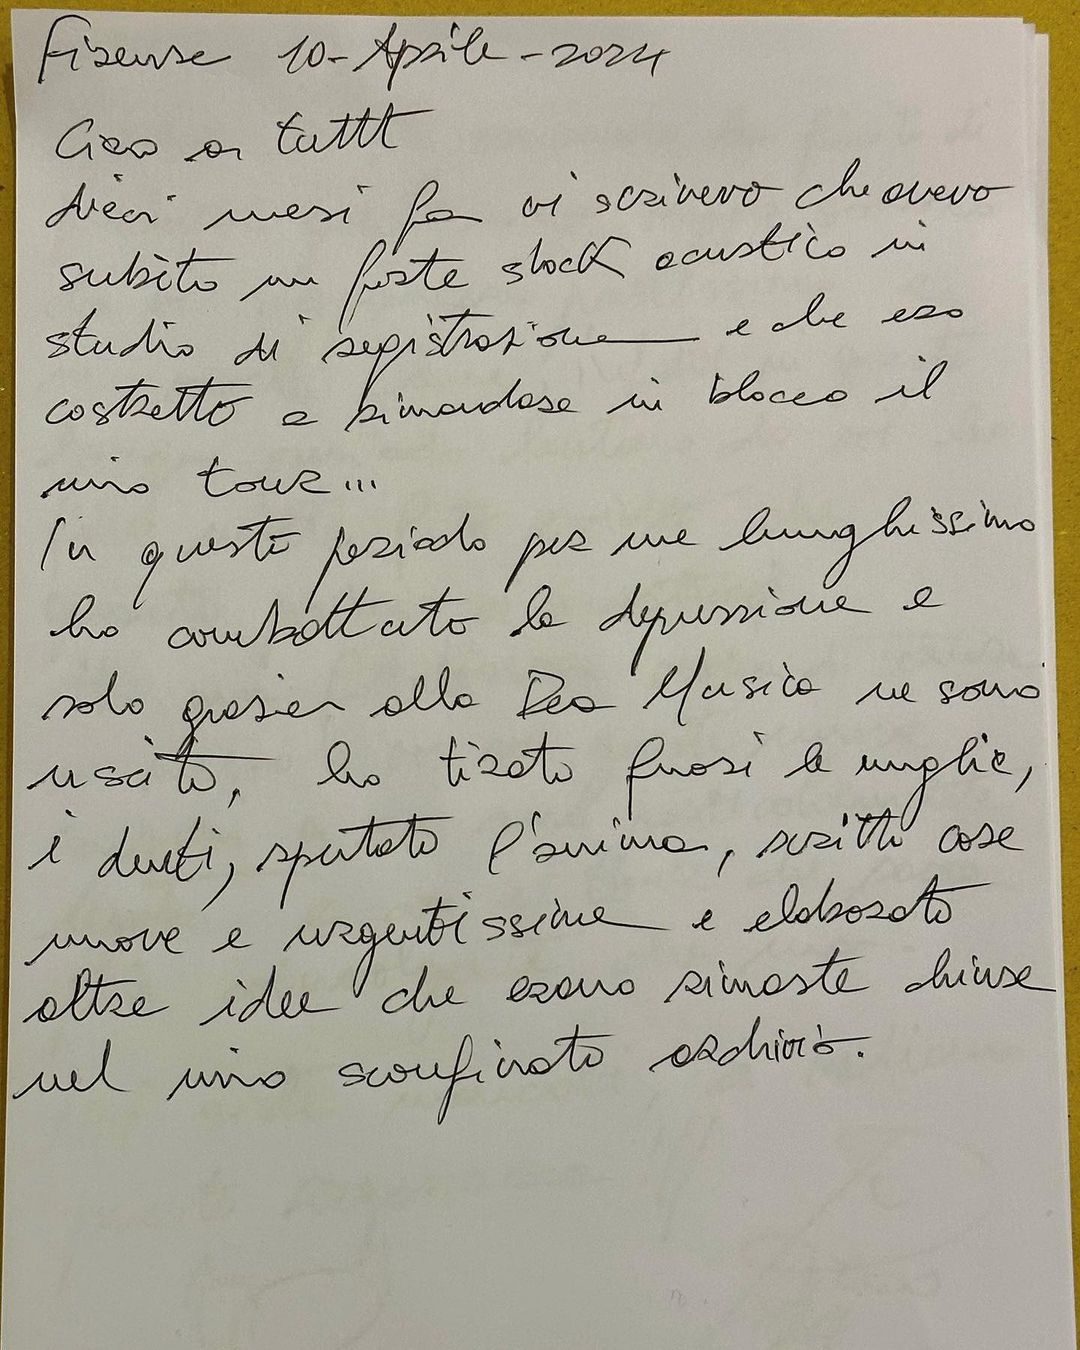 Firenze 10-Aprile-2024
Ciao a tutti
dieci mesi fa vi scrivevo che avevo
subito un forte shock acustico in
studio di registrazione e che ero
costretto a rimandare in blocco il
mio tour...
In questo periodo per me lunghissimo
ho combattuto la depressione e
solo grazie alla Dea Musica ne sono
uscito, ho tirato fuori le unghie,
i denti, sputato l'anima, scritto cose
nuove e urgentissime e elaborato
altre idee che erano rimaste chiuse
nel mio sconfinato archivio.